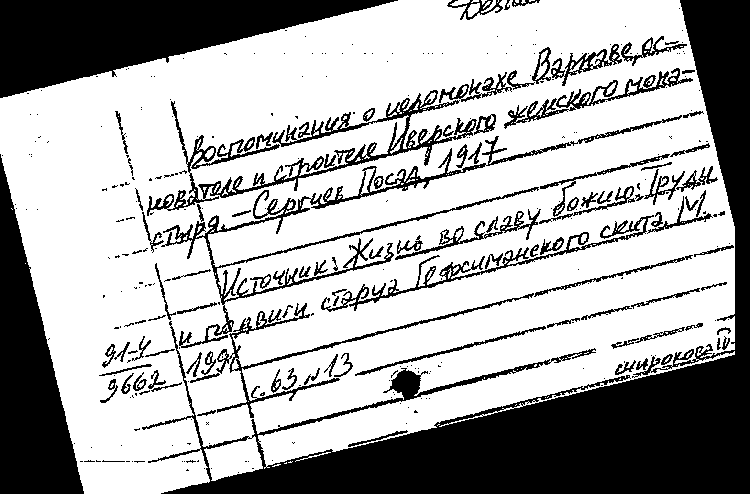 Desider
Воспоминания о иеромонахе Варнаве, ос-
нователе и строителе Иверского женского мона-
стыря. – Сергиев Посад, 1917
Источник: Жизнь во славу божию: Труды
и подвиги старца Гефсиманского скита. М.
91-4
9662
1991
с. 63, № 13
широкова IV-